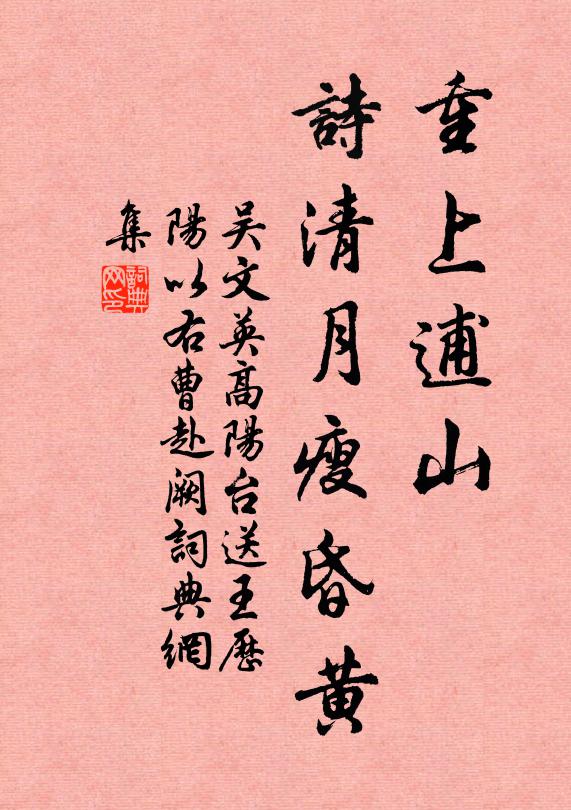 重上逋山
詩清月瘦昏黃
吴文英高陽台送王歷
陽以右曹赴阙詞典網
集
詞典网印